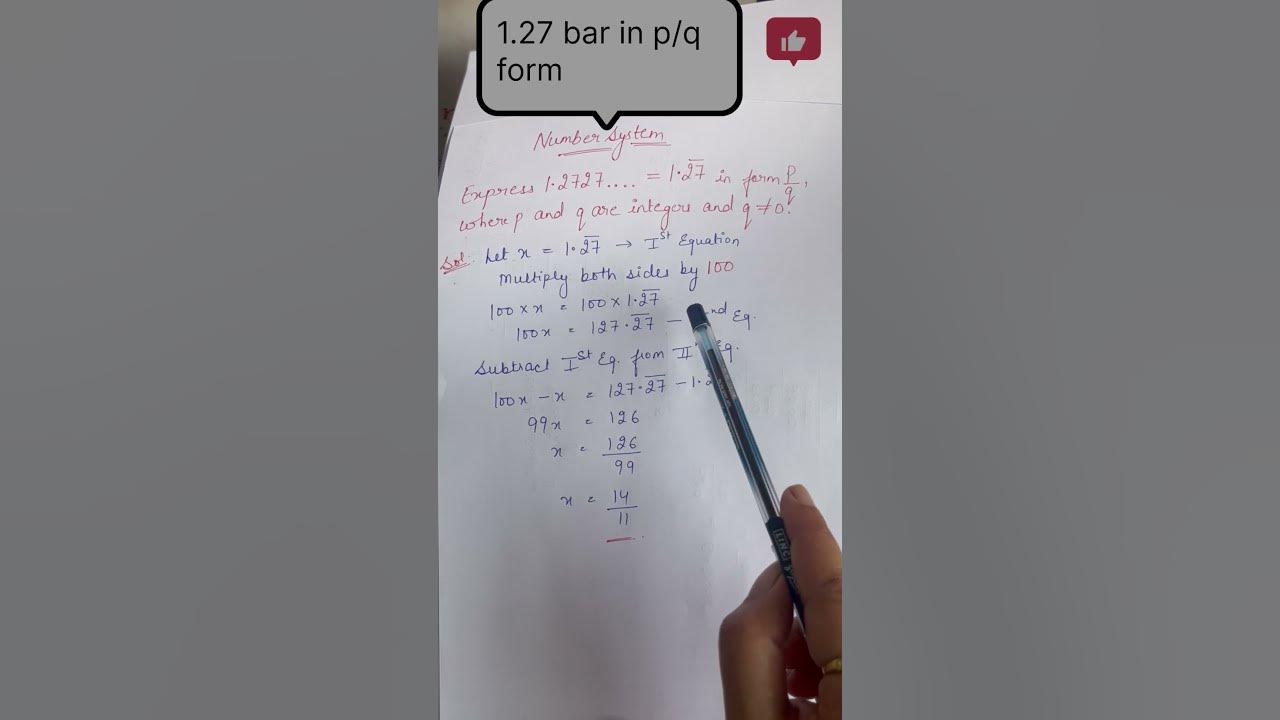 1.27 bar in p/q
form
Number System
Express 1.2727.... = 1.2̅7̅ in form p/q,
where p and q are integers and q ≠ 0.
Sol. Let x = 1.2̅7̅ → Iˢᵗ Equation
Multiply both sides by 100
100 × x = 100 × 1.2̅7̅
100x = 127.2̅7̅ — nd Eq.
Subtract Iˢᵗ Eq. from II Eq.
100x − x = 127.2̅7̅ − 1.2
99x = 126
x = 126/99
x = 14/11